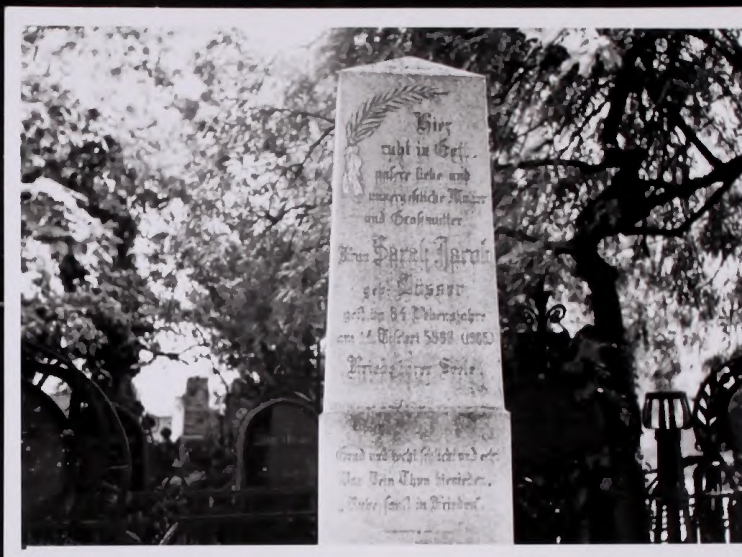 Hier
ruht in Gott
unsere liebe und
unvergeßliche Mutter
und Großmutter
Frau Sarah Jacob
geb.
gest. im 84 Lebensjahre
am
Friede ihrer Seele
Grad und recht schlicht und echt
War Dein Thun hienieden.
Ruhe sanft in Frieden.